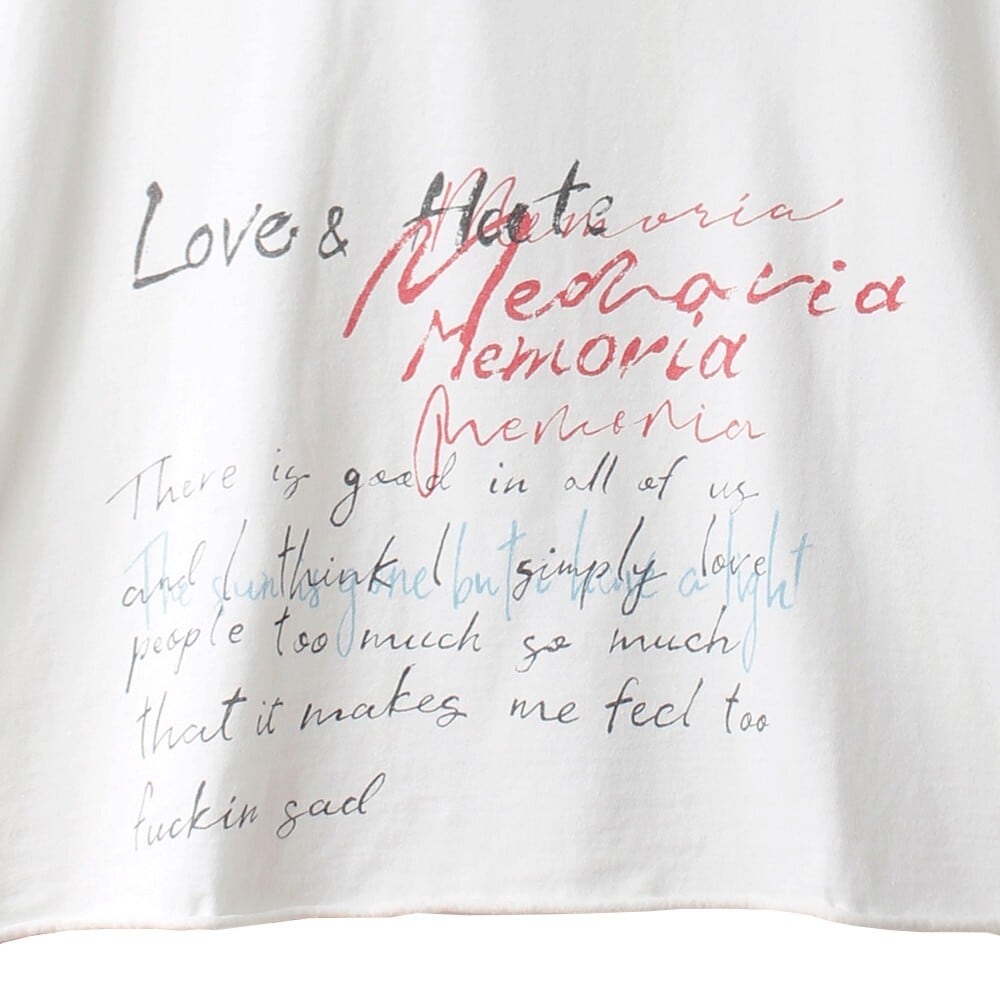 Love & Hate
Memoria
Memoria
Memoria
Memoria
There is good in all of us
and I think I simply love
The sun is gone but i have a light
people too much so much
that it makes me feel too
fuckin sad